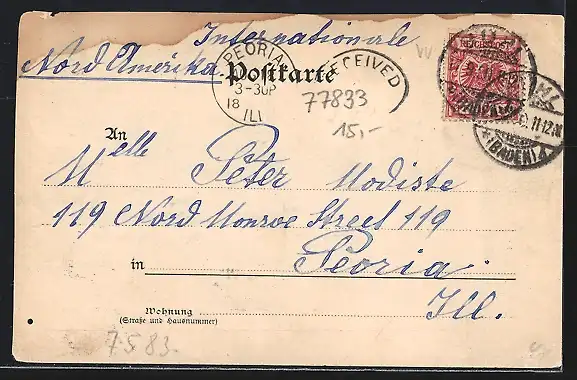 Internationale
Nord Amerika.
Postkarte
PEORIA
3-30P
18
ILL
RECEIVED
REICHSPOST
77833
15,-
11-12N
(BADEN)
An
Melle Peter Modiste
119 Nord Monroe Street 119
in Peoria.
Ill.
Wohnung
(Straße und Hausnummer)
7.5.83.